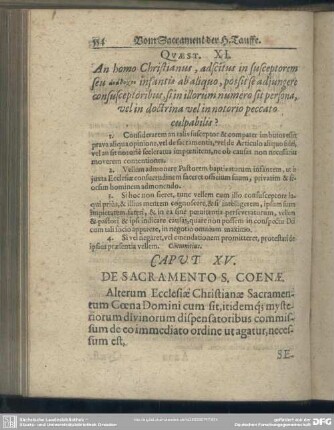 554 Vom Sacrament der H. Tauffe.
QUÆST. XI.
An homo Christianus, adscitus in susceptorem
seu infantis ab aliquo, possit se adjungere
consusceptoribus, si in illorum numero sit persona,
vel in doctrina vel in notorio peccato
culpabilis?
1. Considerarem an talis susceptor & compater imbutus esset
prava aliqua opinione, vel de sacramentis, vel de Articulo aliquo fidei,
vel an sit notoriè sceleratus impœnitens, ne ob causas non necessarias
moverem contentiones.
2. Vellem admonere Pastorem baptizaturum infantem, ut
juxta Ecclesiæ consuetudinem sancti officium suum, privatim &
hominem admonendo.
3. Si hoc non fieret, tunc vellem cum illo consusceptore lo-
qui priùs, & illius mentem cognoscere, & si intelligerem, ipsum sua
impietatem fateri, & in ea sine pœnitentia perseveraturum, vellem
& pastori & ipsi indicare causas, quare non possem in conspectu Dei
cum tali socio apparere, in negotio omnium maximo.
4. Si vel negaret, vel emendationem promitteret, protestatus de
ipsius præsentia vellem.
CAPUT XV.
DE SACRAMENTO S. COENÆ.
Alterum Ecclesiæ Christianæ Sacramen-
tum Cœna Domini cum sit, itidemq; myste-
riorum divinorum dispensatoribus commis-
sum de eo immediato ordine ut agatur, neces-
sum est.
SE-
Sächsische Landesbibliothek -
Staats- und Universitätsbibliothek Dresden
Deutschen Forschungsgemeinschaft
DFG